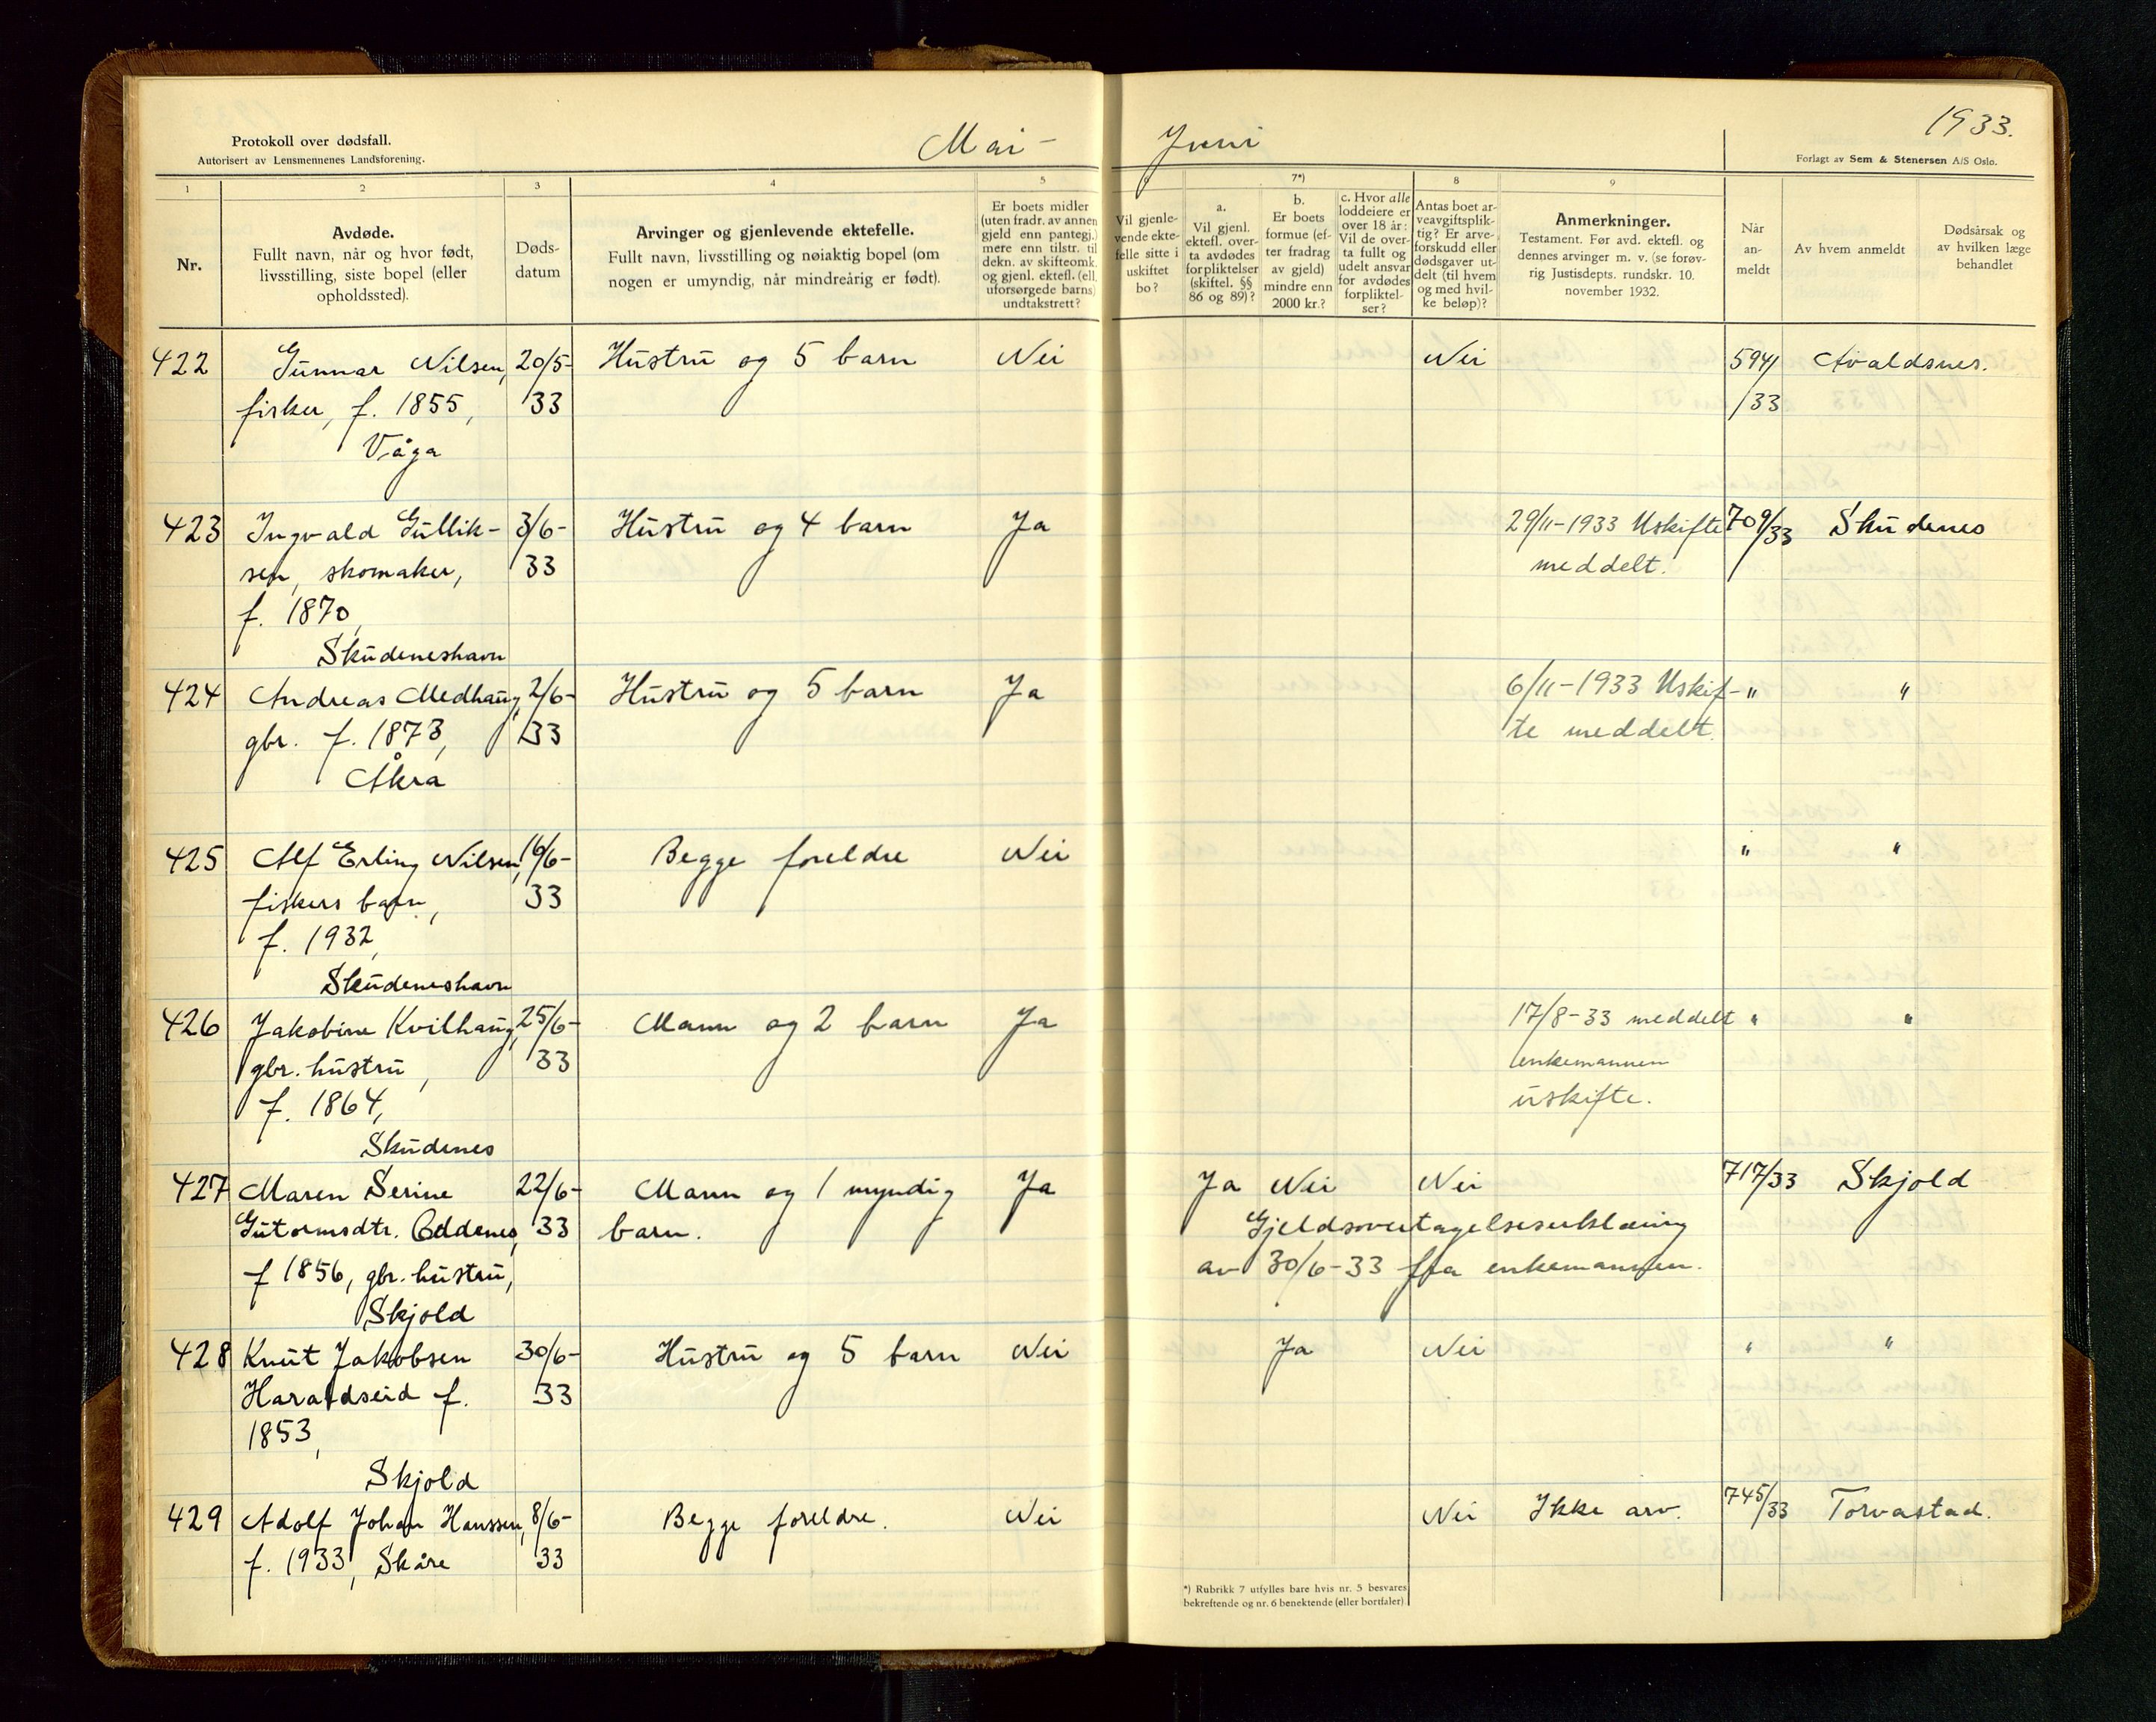 Protokoll over dødsfall.
Autorisert av Lensmennenes Landsforening.
Mai - Juni
1933.
Forlagt av Sem & Stenersen A/S Oslo.
1
2
3
4
5
7*)
8
9
Nr.
Avdøde.
Fullt navn, når og hvor født,
livsstilling, siste bopel (eller
opholdssted).
Døds-
datum
Arvinger og gjenlevende ektefelle.
Fullt navn, livsstilling og nøiaktig bopel (om
nogen er umyndig, når mindreårig er født).
Er boets midler
(uten fradr. av annen
gjeld enn pantegj.)
mere enn tilstr. til
dekn. av skifteomk.
og gjenl. ektef. (ell.
uforsørgede barns)
undtakstrett?
Vil gjenle-
vende ekte-
felle sitte i
uskiftet
bo?
a.
Vil gjenl.
ektefl. over-
ta avdødes
forpliktelser
(skiftel. §§
86 og 89)?
b.
Er boets
formue (ef-
ter fradrag
av gjeld)
mindre enn
2000 kr.?
c. Hvor alle
loddeiere er
over 18 år:
Vil de over-
ta fullt og
udelt ansvar
for avdødes
forpliktel-
ser?
Antas boet ar-
veavgiftsplik-
tig? Er arve-
forskudd eller
dødsgaver ut-
delt (til hvem
og med hvil-
ke beløp)?
Anmerkninger.
Testament. Før avd. ektefl. og
dennes arvinger m. v. (se forøv-
rig Justisdepts. rundskr. 10.
november 1932.
Når
an-
meldt
Av hvem anmeldt
Dødsårsak og
av hvilken læge
behandlet
422 Gunnar Nilsen, 20/5- Hustru og 5 barn Nei Nei 594/ Avaldsnes.
fisker, f. 1855, 33 /33
Våga
423 Ingvald Gullik- 3/6- Hustru og 4 barn Ja 29/11-1933 Uskifte 709/33 Skudenes
sen, skomaker, 33 meddelt.
f. 1870,
Skudeneshavn
424 Andreas Medhaug, 2/6- Hustru og 5 barn Ja 6/11-1933 Uskif- " "
gbr. f. 1873, 33 te meddelt.
Åkra
425 Alf Erling Nilsen, 16/6- Begge foreldre Nei " "
fiskers barn, 33
f. 1932,
Skudeneshavn
426 Jakobine Kvilhaug, 25/6- Mann og 2 barn Ja 17/8-33 meddelt " "
gbr. hustru, 33 enkemannen
f. 1864, uskifte.
Skudenes
427 Maren Serine 22/6- Mann og 1 myndig Ja Ja Nei Nei 717/33 Skjold
Gutormsdtr. Oddenes, 33 barn. Gjeldsovertagelseserklæring
f 1856, gbr. hustru, av 30/6-33 fra enkemannen.
Skjold
428 Knut Jakobsen 30/6- Hustru og 5 barn Nei Ja Nei " "
Haraldseid f. 33
1853,
Skjold
429 Adolf Johan Hanssen, 8/6- Begge foreldre. Nei Nei Ikke arv. 745/33 Torvastad.
f. 1933, Skåre 33
*) Rubrikk 7 utfylles bare hvis nr. 5 besvares
bekreftende og nr. 6 benektende (eller bortfaler)